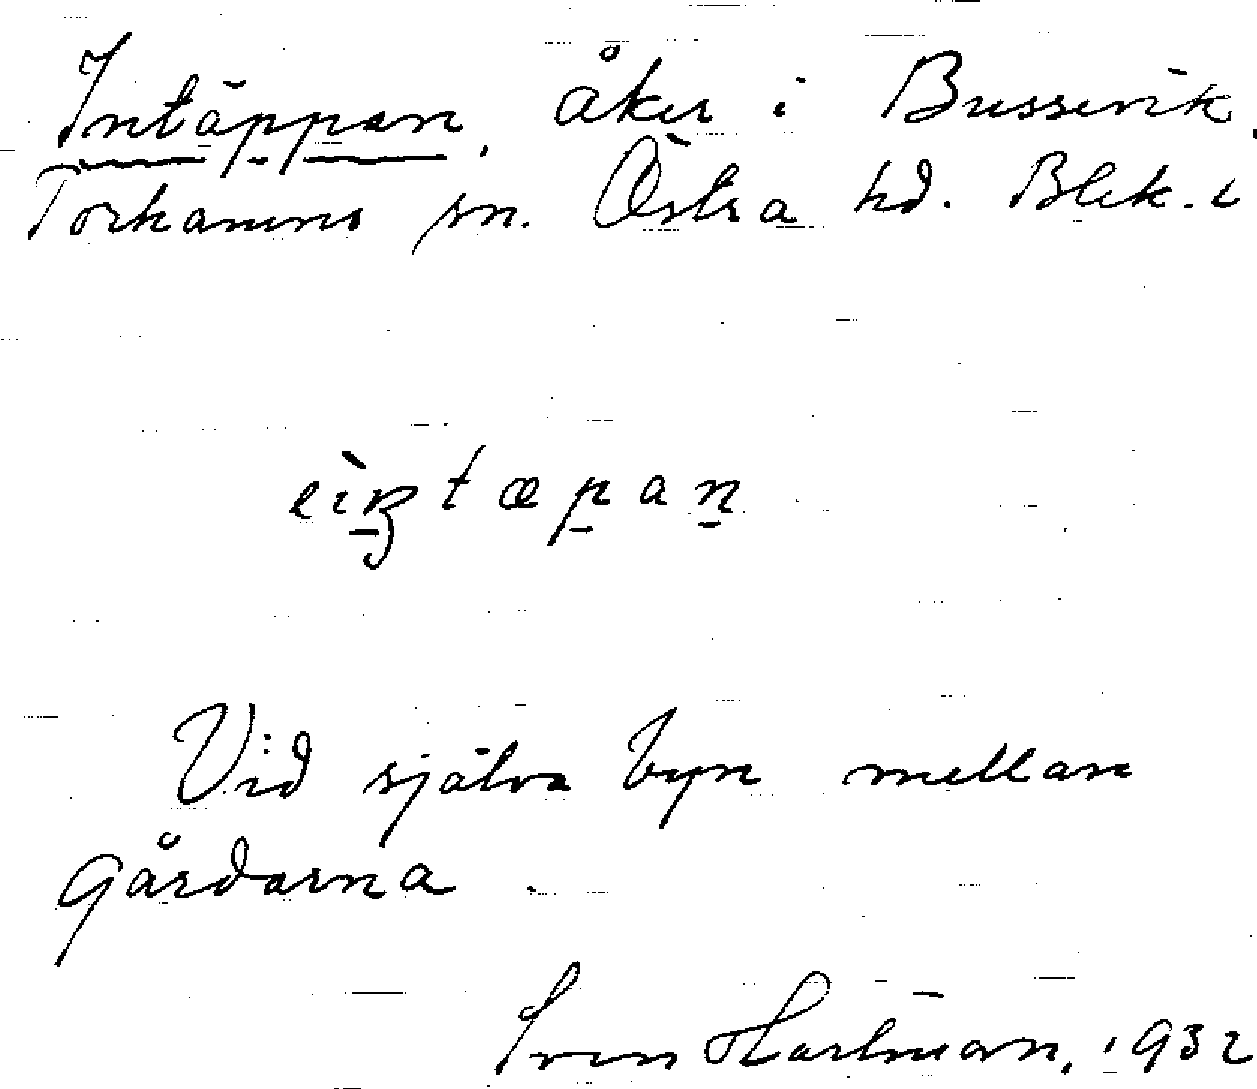 Intäppan, åker i Bussevik,
Torhamns sn. Östra hd. Blek. l
eìŋtæpan
Vid själva byn mellan
gårdarna
Sven Hartman, 1932